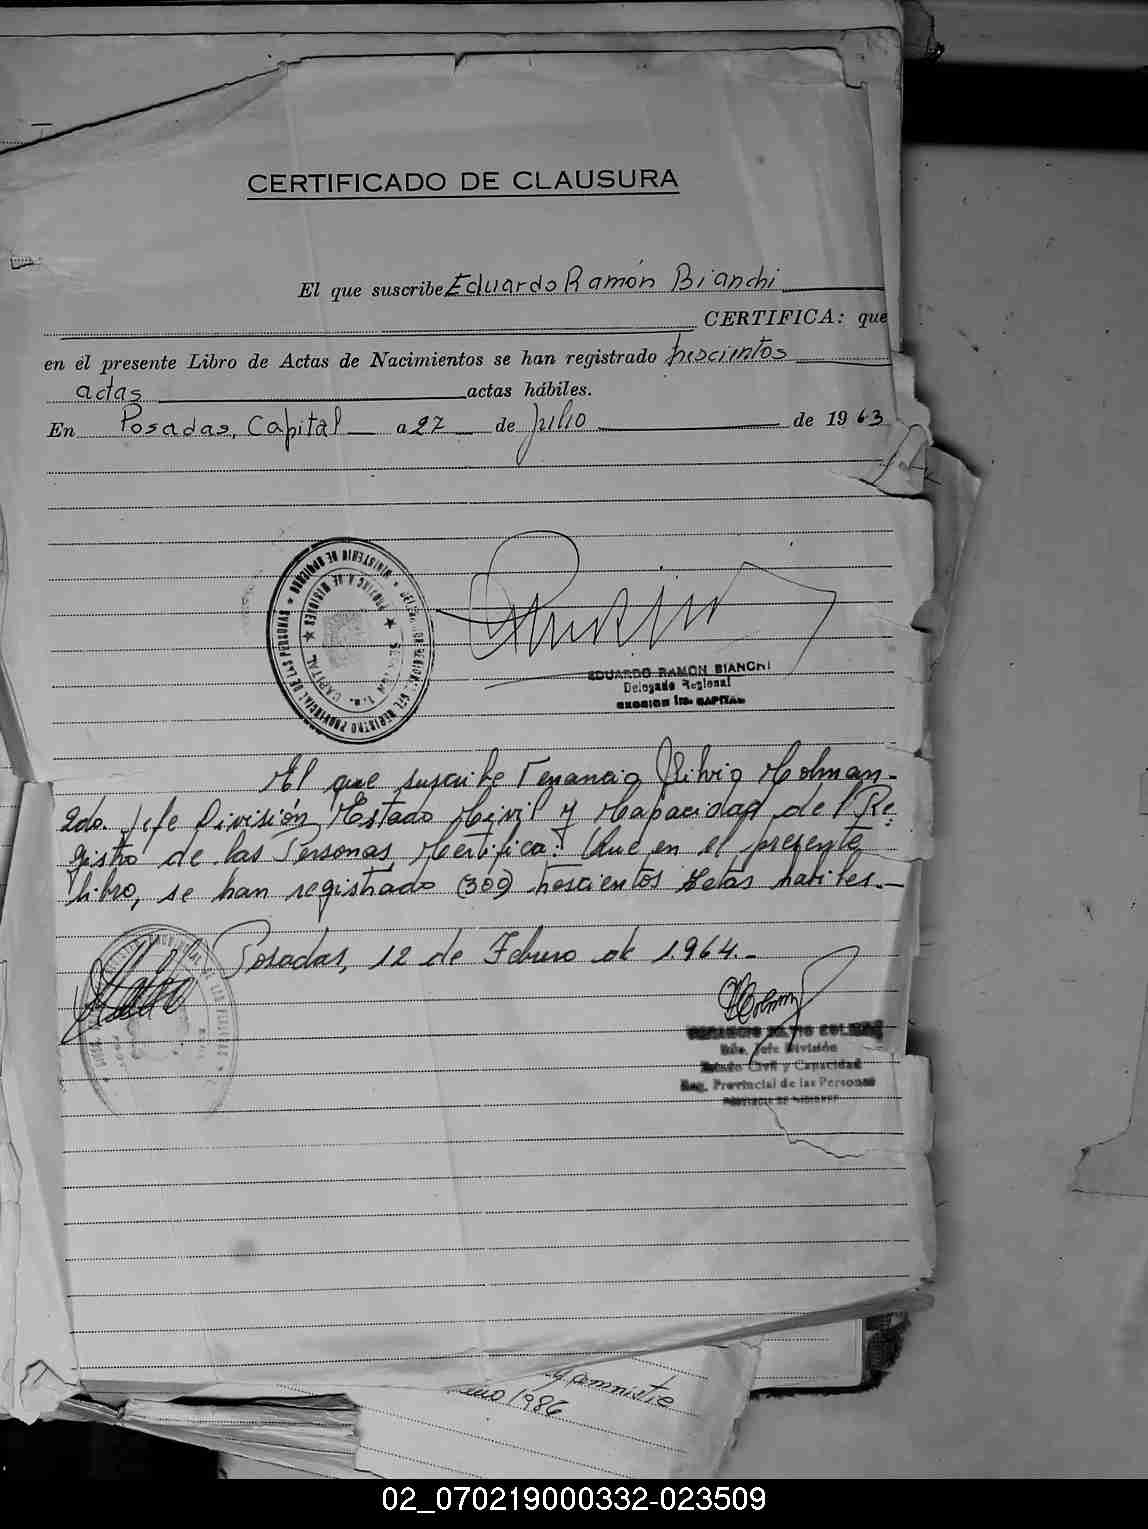 CERTIFICADO DE CLAUSURA
El que suscribe Eduardo Ramón Bianchi
CERTIFICA: que
en el presente Libro de Actas de Nacimientos se han registrado trescientos
actas actas hábiles.
En Posadas, Capital a 27 de Julio de 1963
MINISTERIO DE
REGISTRO PROVINCIAL DE LAS PERSONAS
PROVINCIA DE MISIONES
SECCION 1ra. CAPITAL
EDUARDO RAMON BIANCHI
Delegado Regional
SECCION 1ra. CAPITAL
El que suscribe Venancio Silvio Colman-
2do. Jefe División Estado Civil y Capacidad del Re-
gistro de las Personas Certifica: Que en el presente
libro, se han registrado (300) trescientos actas habiles.-
Posadas, 12 de Febrero de 1.964.-
VENANCIO SILVIO COLMAN
2do. Jefe División
Estado Civil y Capacidad
Reg. Provincial de las Personas
PROVINCIA DE MISIONES
1986
02_070219000332-023509